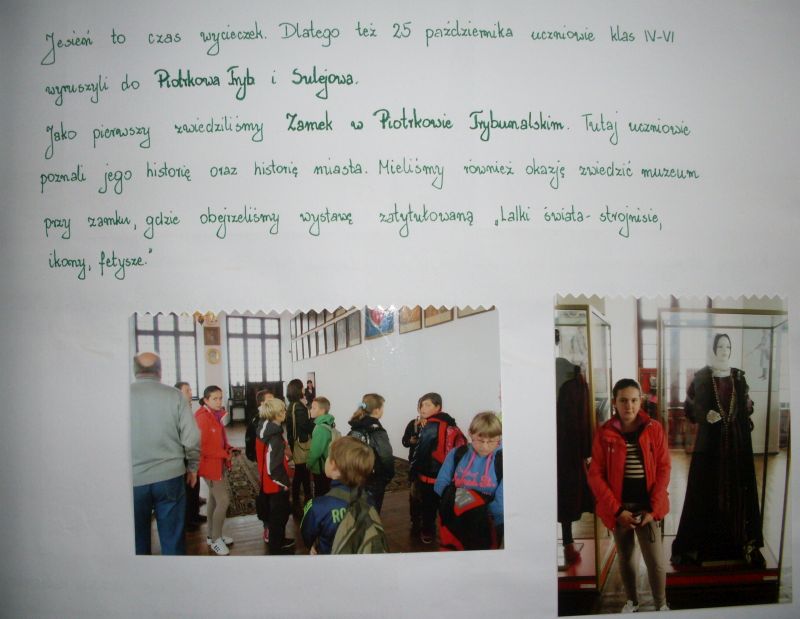 Jesień to czas wycieczek. Dlatego też 25 października uczniowie klas IV-VI
wyruszyli do Piotrkowa Tryb i Sulejowa.
Jako pierwszy zwiedziliśmy Zamek w Piotrkowie Trybunalskim. Tutaj uczniowie
poznali jego historię oraz historię miasta. Mieliśmy również okazję zwiedzić muzeum
przy zamku, gdzie obejrzeliśmy wystawę zatytułowaną „Lalki świata - strojnisie,
ikony, fetysze."
RO